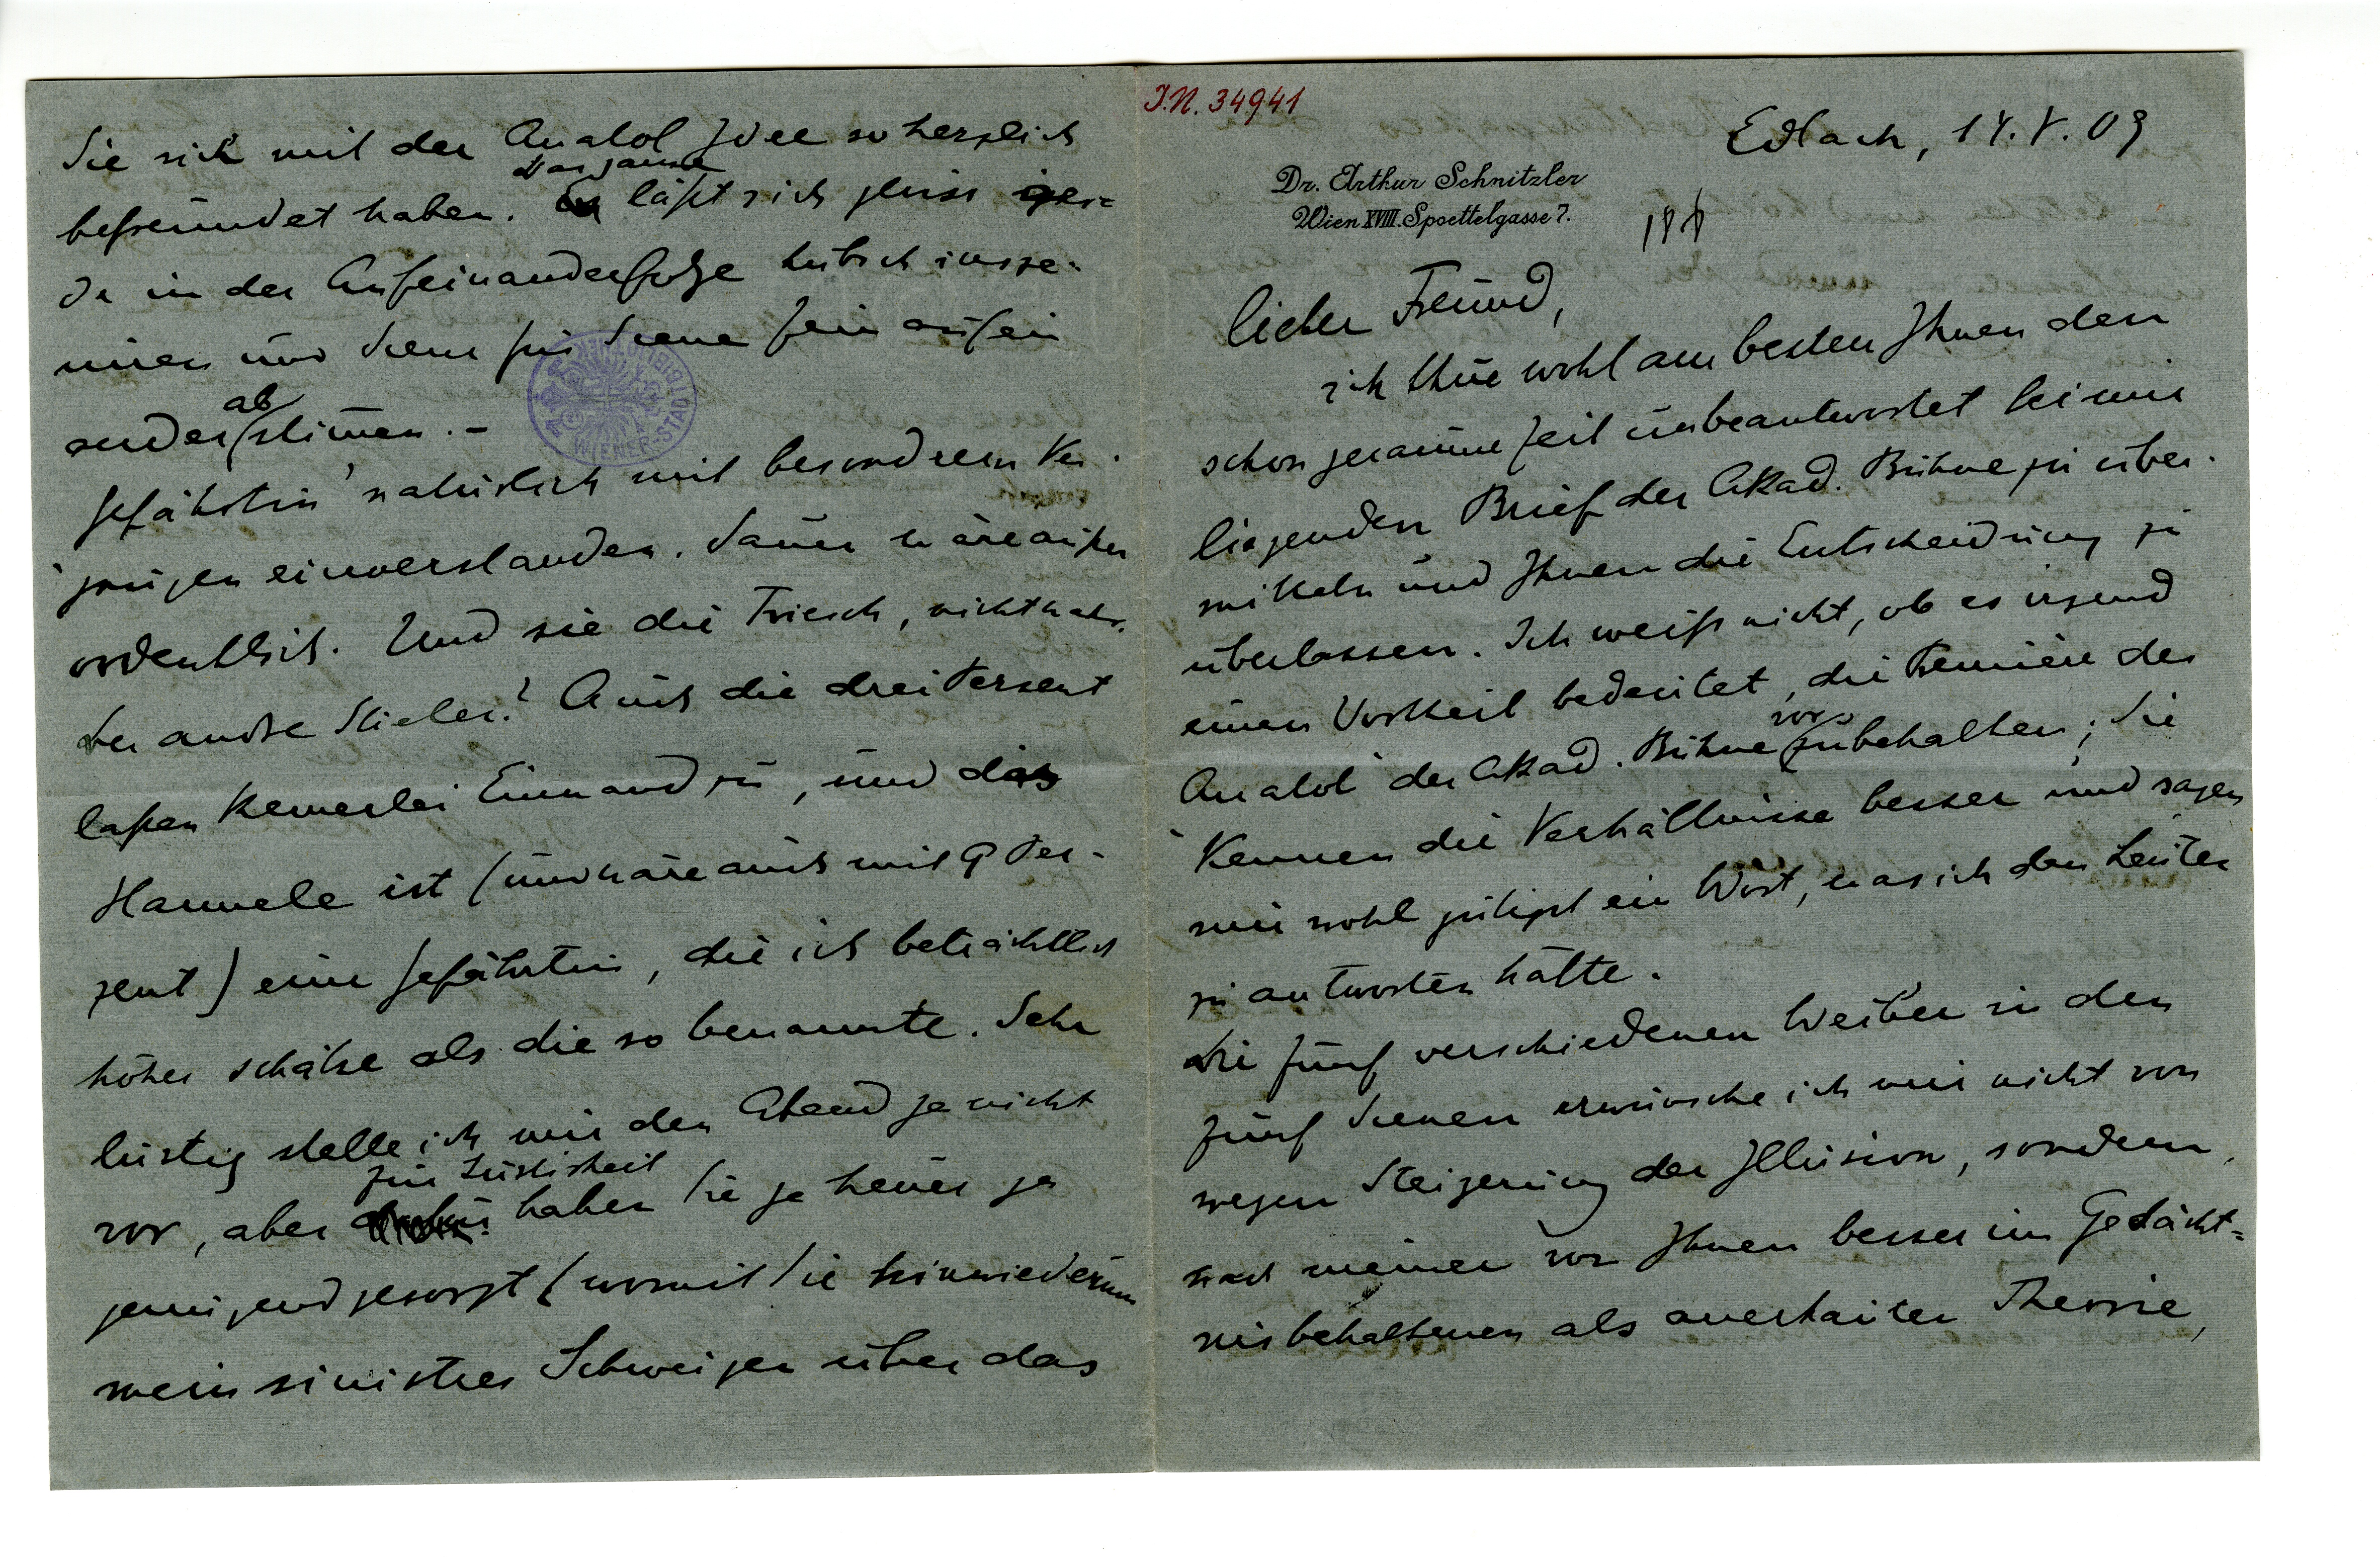 I.N. 34941
Edlach, 14. V. 09
Dr. Arthur Schnitzler
Wien XVIII. Spoettelgasse 7.
lieber Freund,
ich thue wohl am besten Ihnen den
schon geraume Zeit unbeantwortet bei mir
liegenden Brief der Akad. Bühne zu über-
mitteln und Ihnen die Entscheidung zu
überlassen. Ich weiß nicht, ob es irgend
einen Vortheil bedeutet, die Première des
vor
Anatol der Akad. Bühne zubehalten; Sie
kennen die Verhältnisse besser und sagen
mir wohl gütigst ein Wort, was ich den Leuten
zu antworten hätte.
Die fünf verschiedenen Weiber in den
fünf Scenen erwünsche ich mir nicht von
wegen Steigerung der Illusion, sondern
nach meiner von Ihnen besser im Gedächt=
nis behaltenen als anerkannten Theorie,
Sie sich mit der Anatol Idee so herzlich
das ganze
befreundet haben. läßt sich gewiss gera-
de in der Aufeinanderfolge hübsch insze-
niren und Scene für Scene fein aufein
ab
anderstimmen. –
WIENER-STADTBIBLIOTHEK
Gefährtin natürlich mit besondrem Ver-
gnügen einverstanden. Dauer wäre außer
ordentlich. Und sie die Triesch, nicht wahr.
der andre Stieler? Auch die drei Perzent
laßen keinerlei Einwand zu, und das
Hannele ist (und wäre auch mit 9 Per-
zent) eine Gefährtin, die ich beträchtlich
höher schätze als die so benannte. Sehr
lustig stelle ich mir den Abend ja nicht
für Lustigkeit
vor, aber haben Sie ja heuer ja
genügend gesorgt (womit Sie hinwiederum
mein sinistres Schweigen über das